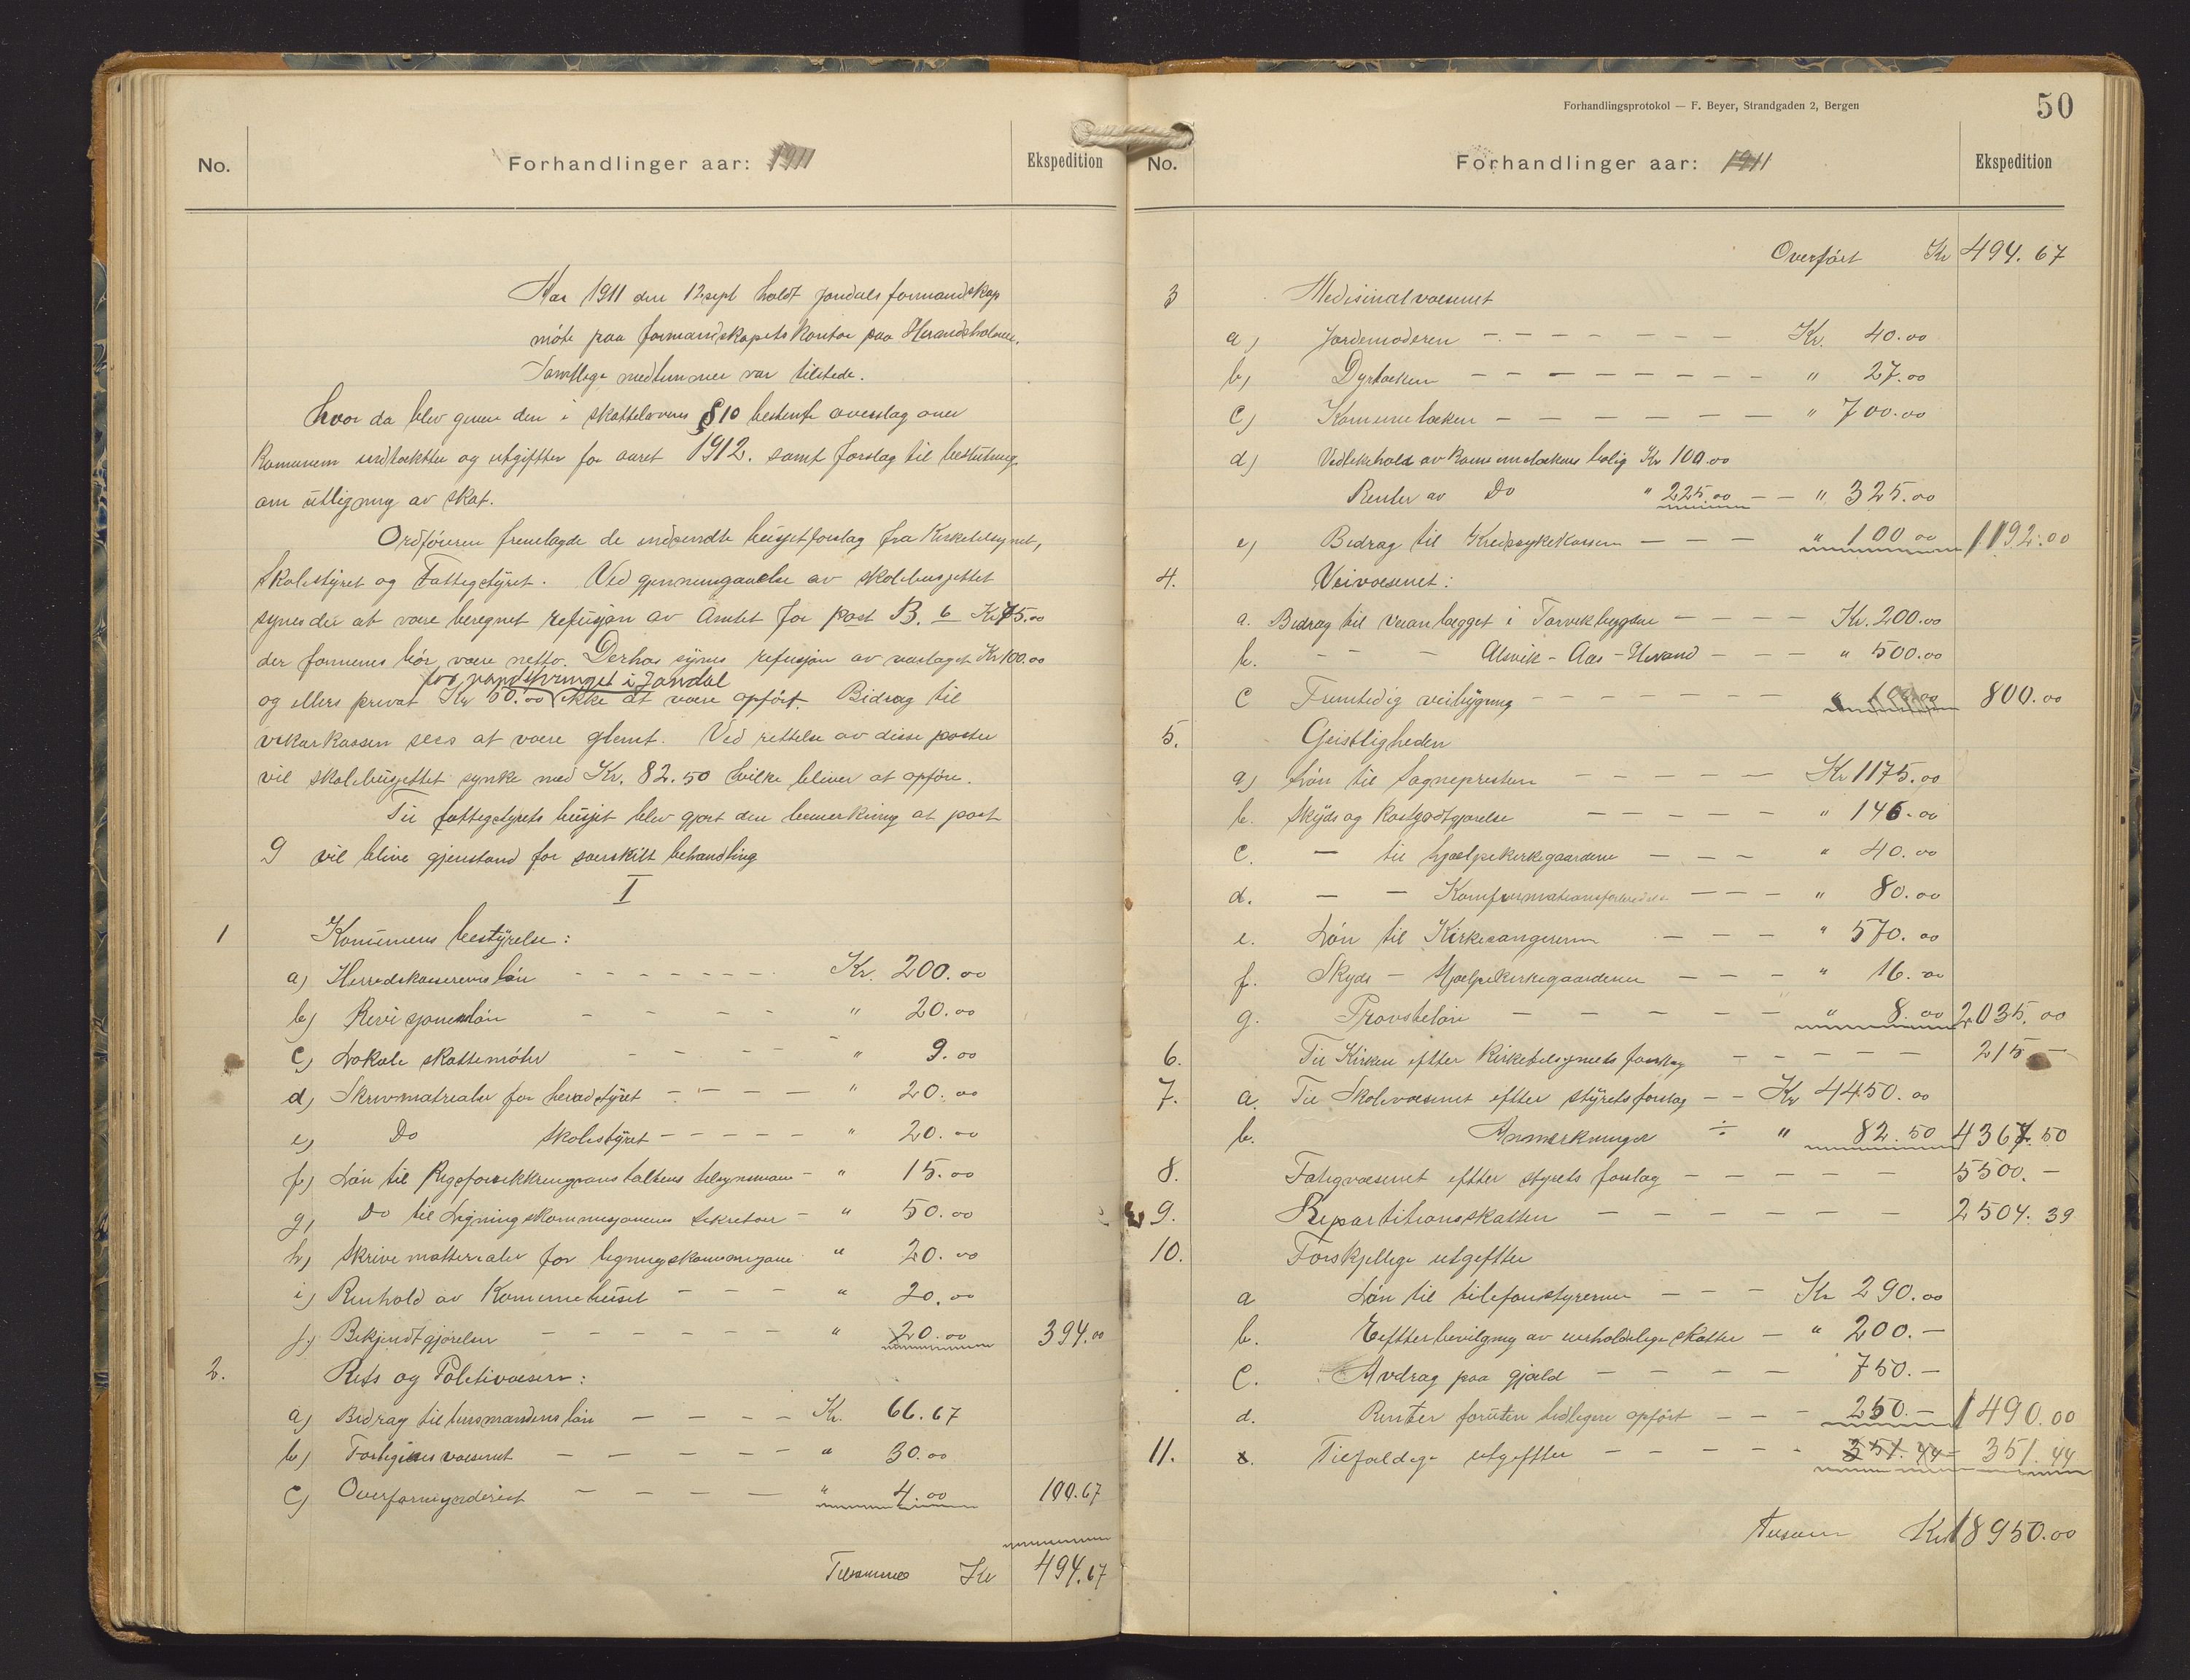 No.
Forhandlinger aar: 1911
Ekspedition
Aar 1911 den 12 sept holdt Jondals formandskap
møte paa formandskapets kontor paa Herandsholmen.
Samtlige medlemmer var tilstede.
Hvor da blev gjennem den i skattelovens § 10 bestemte overslag over
komunens indtækter og utgifter for aaret 1912. samt forslag til beslutning
om utligning av skat.
Ordføreren fremlagde de indsendte busjetforslag fra Kirketilsynet,
Skolestyret og Fattigstyret. Ved gjennemgaaelse av skolebusjettet
synes der at være beregnet refusjon av Amtet for post B. 6 Kr 75.00
der formenes bør være netto. Derhos synes refusjon av vaslaget Kr 100.00
for vandspringet i Jondal
og ellers privat Kr 50.00 ikke at være opført. Bidrag til
vikarkassen sees at være glemt. Ved rettelse av disse poster
vil skolebusjettet synke med Kr. 82.50 hvilke bliver at opføre.
Til fattigstyrets busjet blev gjort den bemerkning at post
9 vil blive gjenstand for særskilt behandling
I
1 Komunens bestyrelse:
a) Herredskasserens løn - - - - - - - Kr. 200.00
b) Revisjonensløn - - - - - " 20.00
c) Lokale skattemøter - - - - - " 9.00
d) Skrivmatrealer for heradstyret - - - - " 20.00
e) Do skolestyret - - - - - " 20.00
f) Løn til Rigsforsikkringsanstaltens tilsynsmann - " 15.00
g) Do til Ligningskommusjonens sekretær - " 50.00
h) Skrive matterialer for ligningskommusjonen " 20.00
i) Renhold av Komunehuset - - - " 20.00
j) Bekjendtgjørelser - - - - - - " 20.00 394.00
2. Rets og Politivæsen:
a) Bidrag til lensmandens løn - - - - Kr. 66.67
b) Forligelsesvæsenet - - - - - - " 30.00
c) Overformynderiet - - - - - " 4.00 100.67
Tilsammen Kr 494.67
Forhandlingsprotokol — F. Beyer, Strandgaden 2, Bergen
50
No.
Forhandlinger aar: 1911
Ekspedition
Overført Kr 494.67
3 Medisinalvæsenet
a) Jordemoderen - - - - - - - Kr. 40.00
b) Dyrlæken - - - - - - - - " 27.00
c) Komunelæken - - - - - - " 700.00
d) Vedlikehold av komunelækens bolig Kr 100.00
Renter av Do " 225.00 - - " 325.00
e) Bidrag til Kredssykekassen - - - " 100.00 1192.00
4. Veivæsenet:
a. Bidrag til veianlægget i Torvikbygden - - - - Kr. 200.00
b. - - - Alsvik - Aas - Herand - - - " 500.00
c Fremtidig veibygning - - - - - - - " 100.00 800.00
5. Geistligheden
a) Løn til Sognepresten - - - - - Kr 1175.00
b. Skyds og kostgodtgjørelse - - - - - " 146.00
c. - til hjælpekirkegaardene - - - " 40.00
d. - - Komfirmationsforberedelse - - - " 80.00
e. Løn til Kirkesangeren - - - " 570.00
f. Skyds - Hjælpekirkegaardene - - - " 16.00
g. Provsteløn - - - - - - " 8.00 2035.00
6. Til Kirken efter Kirketilsynets forslag - - - - - 215 -
7. a. Til Skolevæsenet efter styrets forslag - - Kr 4450.00
b. Anmerkninger ÷ " 82.50 4367.50
8. Fatigvæsenet efter styrets forslag - - - - - 5500. -
9. Repartitionsskatten - - - - - - 2504.39
10. Forskjellige utgifter
a Løn til telefonstyrerne - - - Kr 290.00
b. Efterbevilgning av uerholdelige skatter - " 200. -
c. Avdrag paa gjæld - - - - 750. -
d. Renter foruten tidligere opført - - - 250. - 1490.00
11. Tilfældige utgifter - - - - - 351.44 - 351.44
Tilsam Kr 18950.00